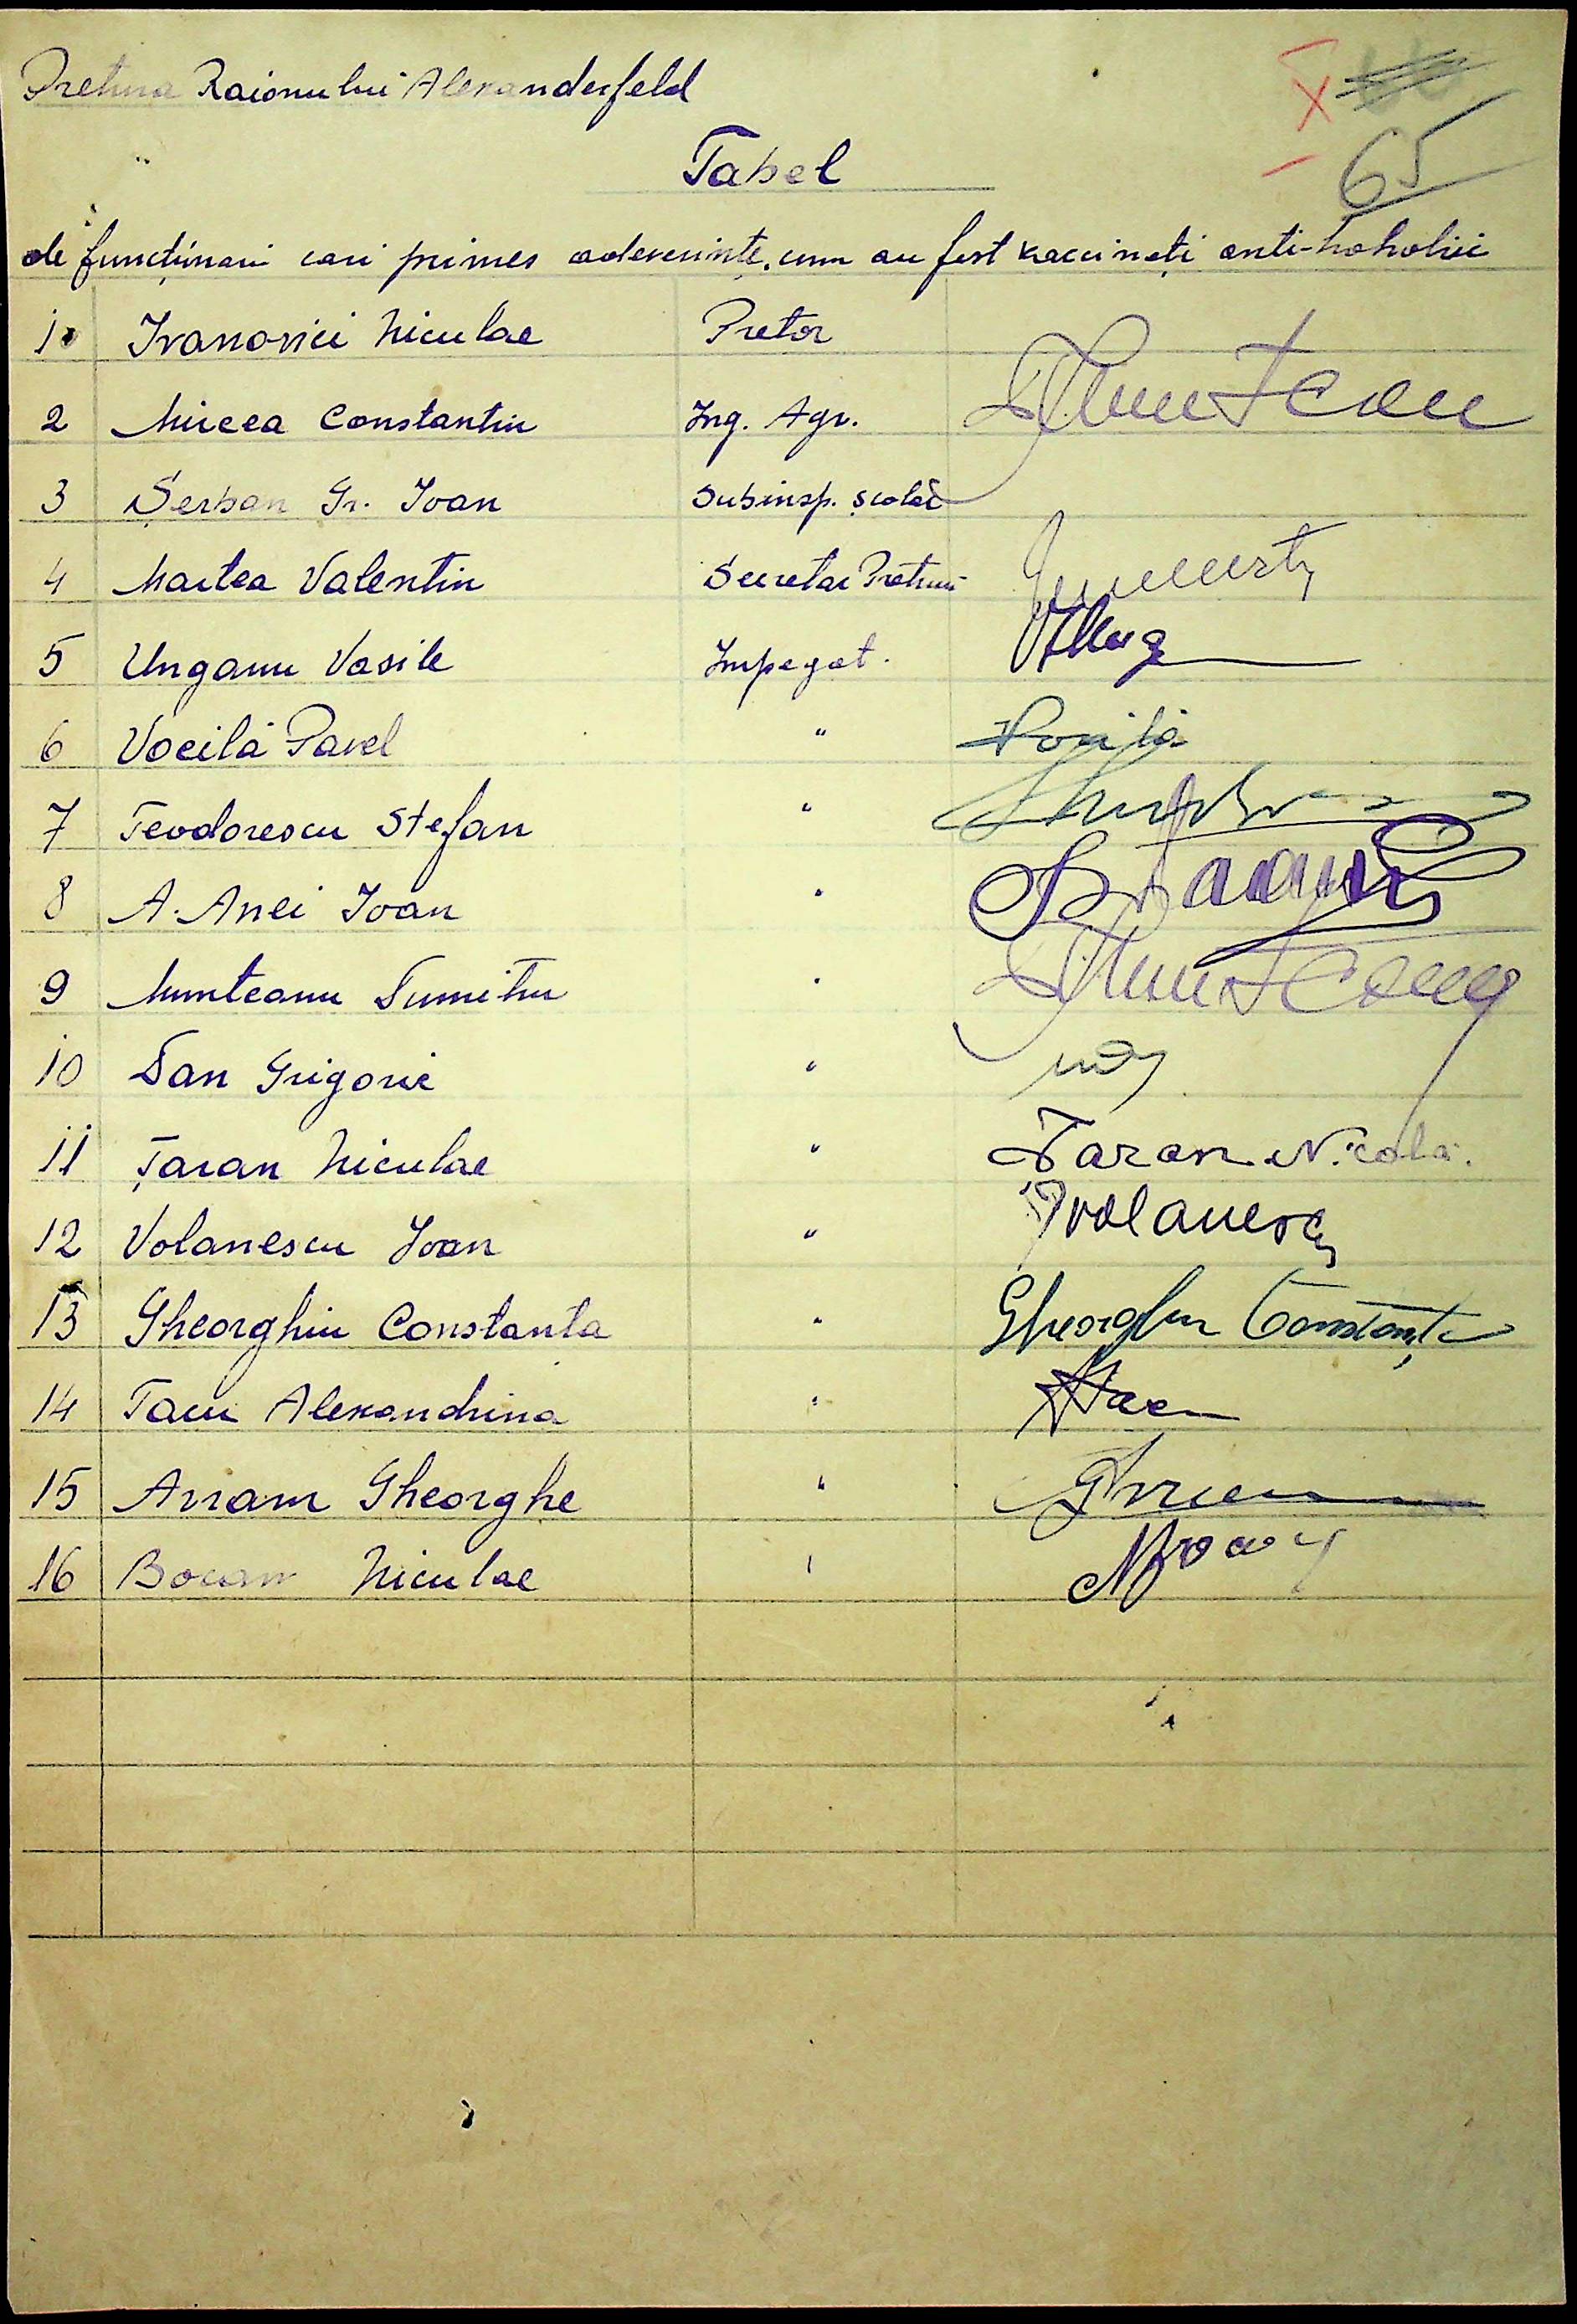 Pretura Raionului Alexanderfeld
65
Tabel
de funcținari cari primesc adeverințe, cum au fost vaccinați anti-holerici
1. Ivanovici Niculae Pretor
2 Mircea Constantin Ing. Agr.
3 Șerban Gr. Ioan Subinsp. școlar
4 Martea Valentin Secretar Preturii
5 Unganu Vasile Impegat.
6 Voeilă Pavel "
7 Teodorescu Stefan "
8 A. Anei Ioan "
9 Munteanu Dumitru "
10 Dan Grigorie "
11 Țaran Niculae " Taran Nicolai.
12 Volanescu Ioan " IVolanescu
13 Gheorghiu Constanta " Gheorghiu Constanța
14 Tacu Alexandrina "
15 Avram Gheorghe "
16 Bocan Niculae "